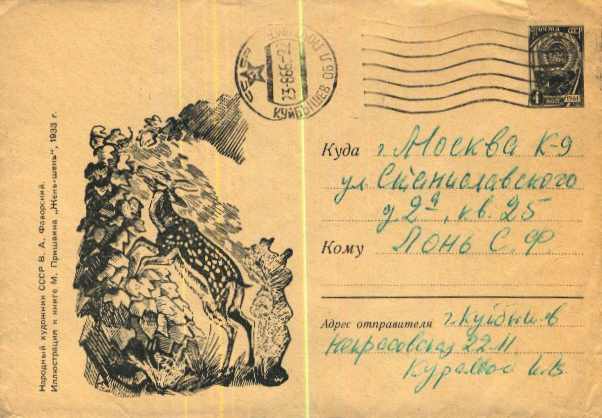 Народный художник СССР В. А. Фаворский.
Иллюстрация к книге М. Пришвина „Жень-шень“, 1933 г.
СССР
23·866-22
КУЙБЫШЕВ ОБЛ
ПОЧТА СССР
4
КОП
1961
Куда г. Москва К-9
ул Станиславского
д 2а, кв. 25
Кому Лонь С. Ф.
Адрес отправителя г. Куйбышев
Некрасовская 22-11
И. В.